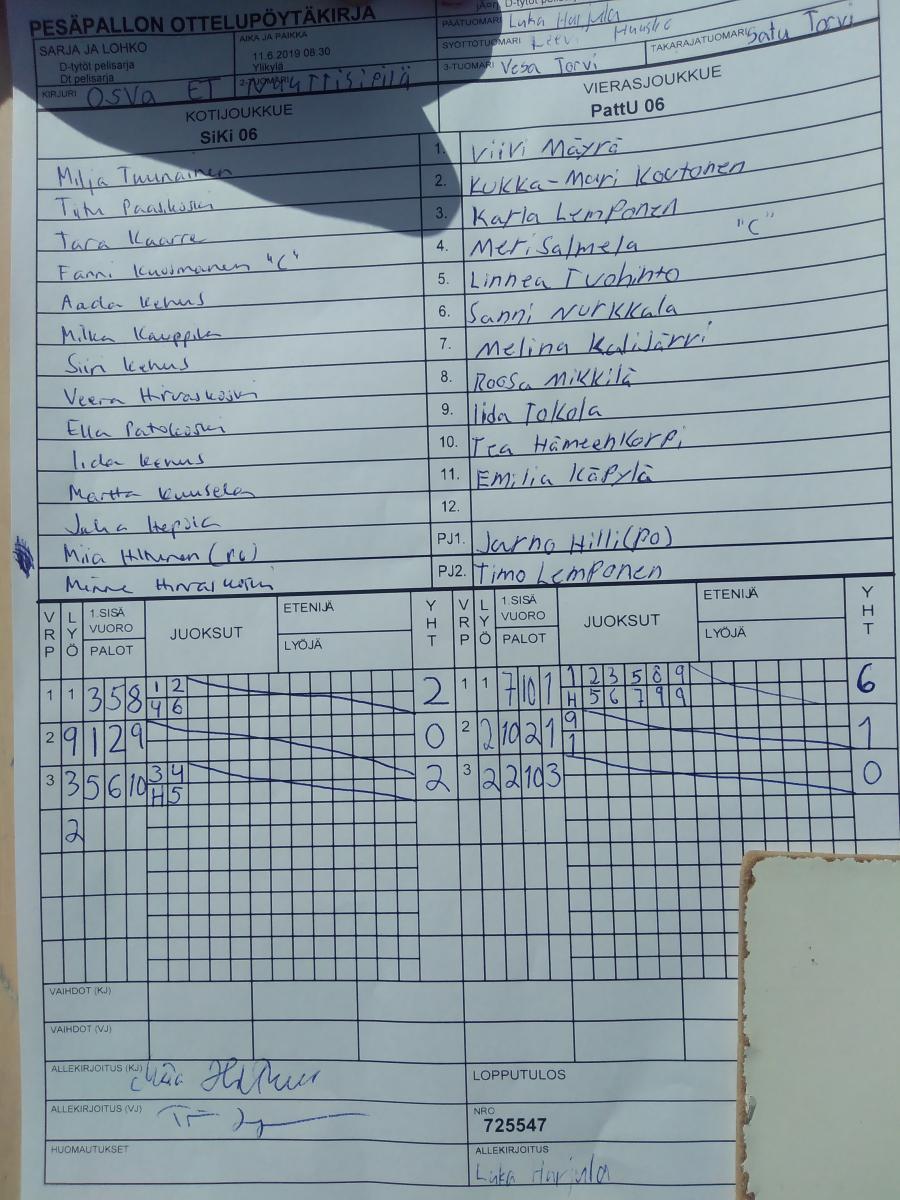 PESÄPALLON OTTELUPÖYTÄKIRJA
D-tytöt
SARJA JA LOHKO
D-tytöt pelisarja
Dt pelisarja
AIKA JA PAIKKA
11.6.2019 08:30
Ylikylä
PÄÄTUOMARI Luka Harjula
SYÖTTÖTUOMARI Leevi
TAKARAJATUOMARI Satu Torvi
3-TUOMARI Vesa Torvi
KIRJURI OSVa ET
2-TUOMARI
KOTIJOUKKUE
SiKi 06
VIERASJOUKKUE
PattU 06
Milja Tuunainen 1. Viivi Mäyrä
Paaskoski 2. Kukka-Mari Koutonen
Tara Kaarre 3. Karla Lemponen
Fanni Kuosmanen "C" 4. Meri Salmela "C"
Aada Kehus 5. Linnea Tuohinto
Milka Kauppila 6. Sanni Nurkkala
Siiri Kehus 7. Melina Kalijärvi
Veera Hirvaskoski 8. Roosa Mikkilä
Ella Patokoski 9. Iida Tokola
Iida Kehus 10. Tea Hämeenkorpi
Martta Kuusela 11. Emilia Käpylä
12.
Miia Hiltunen (PJ) PJ1. Jarno Hilli (PO)
Minna Hirvaskoski PJ2. Timo Lemponen
VRP LYÖ 1.SISÄ VUORO PALOT JUOKSUT ETENIJÄ LYÖJÄ YHT VRP LYÖ 1.SISÄ VUORO PALOT JUOKSUT ETENIJÄ LYÖJÄ YHT
1 1 3 5 8 1 2 2 1 1 7 10 1 1 2 3 5 8 9 6
4 6 H 5 6 7 9 9
2 9 1 2 9 0 2 2 10 2 1 9 1
1
3 3 5 6 10 3 4 2 3 2 2 10 3 0
H 5
2
VAIHDOT (KJ)
VAIHDOT (VJ)
ALLEKIRJOITUS (KJ) Miia
LOPPUTULOS
ALLEKIRJOITUS (VJ)
NRO
725547
HUOMAUTUKSET
ALLEKIRJOITUS
Luka Harjula